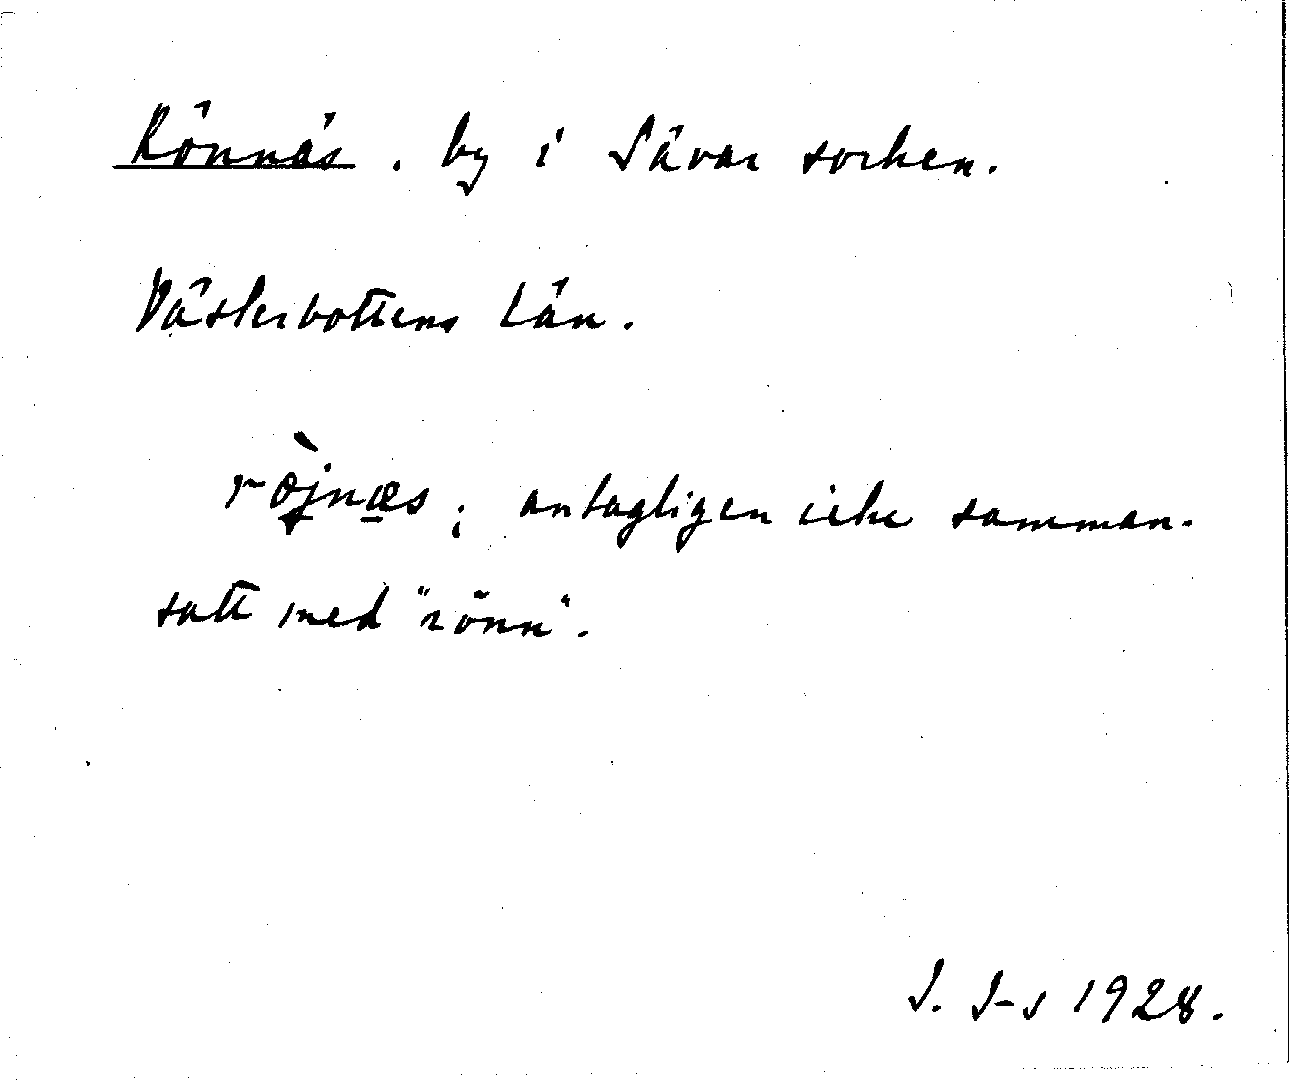 Rönnäs. by i Sävar socken.
Västerbottens län.
ròjnæs; antagligen icke samman-
satt med "rönn".
J. J-s 1928.